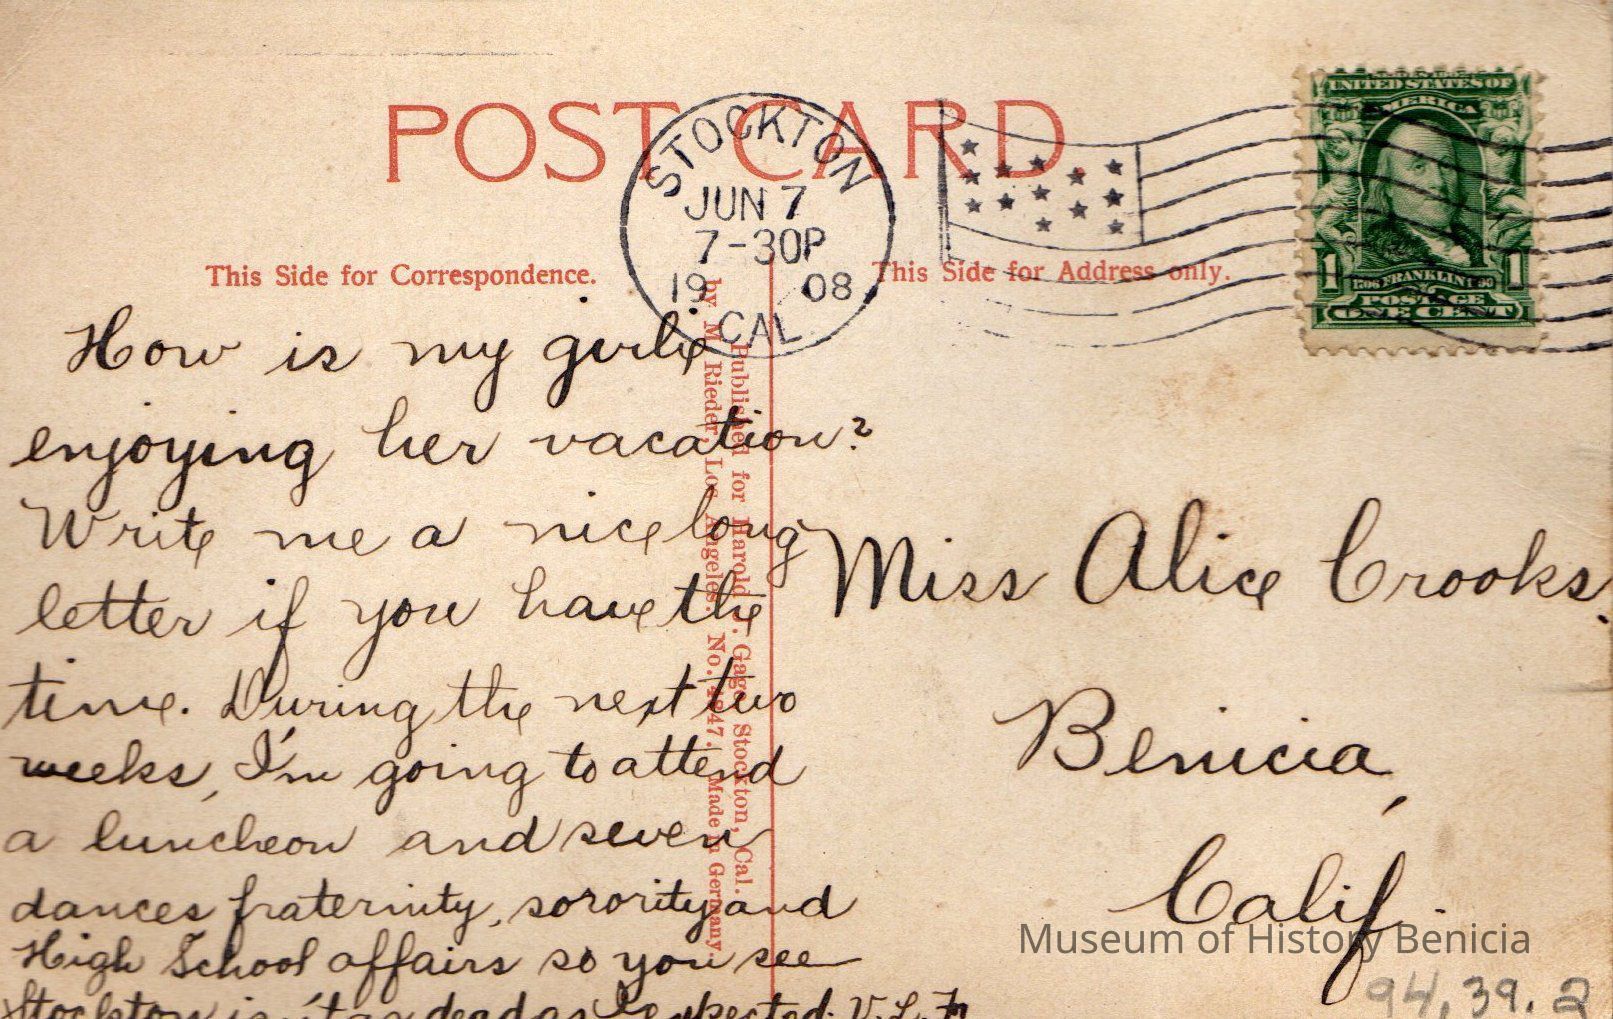 POST CARD.
STOCKTON
JUN 7
7-30P
1908
CAL.
UNITED STATES OF
AMERICA
1 1706 FRANKLIN 1790 1
POSTAGE
ONE CENT
This Side for Correspondence.
This Side for Address only.
How is my girlie
enjoying her vacation?
Write me a nice long
letter if you have the
time. During the next two
weeks, I'm going to attend
a luncheon and seven
dances fraternity, sorority and
High School affairs so you see
Stockton isn't as dead as I expected. V.L.
Published for Harold J. Gage, Stockton, Cal.
by M. Rieder, Los Angeles. No. 4847. Made in Germany.
Miss Alice Crooks.
Benicia,
Calif.
Museum of History Benicia
94.39.2